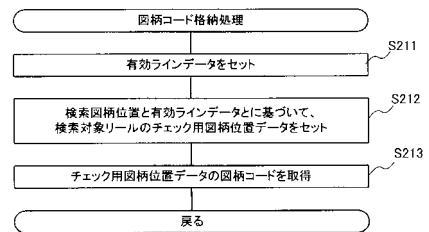 図柄コード格納処理
S211
有効ラインデータをセット
S212
検索図柄位置と有効ラインデータとに基づいて、
検索対象リールのチェック用図柄位置データをセット
S213
チェック用図柄位置データの図柄コードを取得
戻る